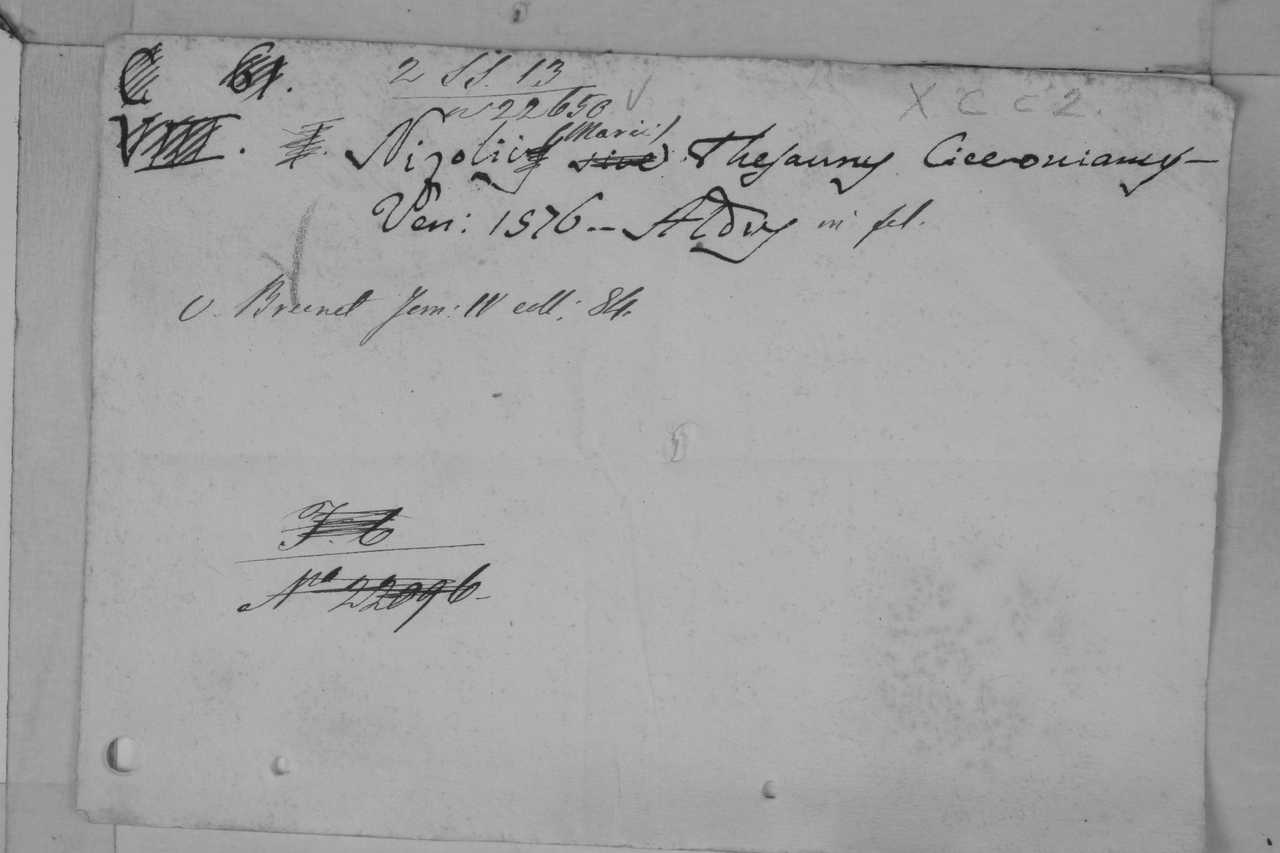 C 61. 2 SS. 13 X C C 2.
n 22650
VIII. I. Nizolii (Marii) sive Thesaurus Ciceronianus—
Ven: 1576 — Aldus in fol.
v. Brunet Tom: IV coll: 84.
F. 6
Nro 22096